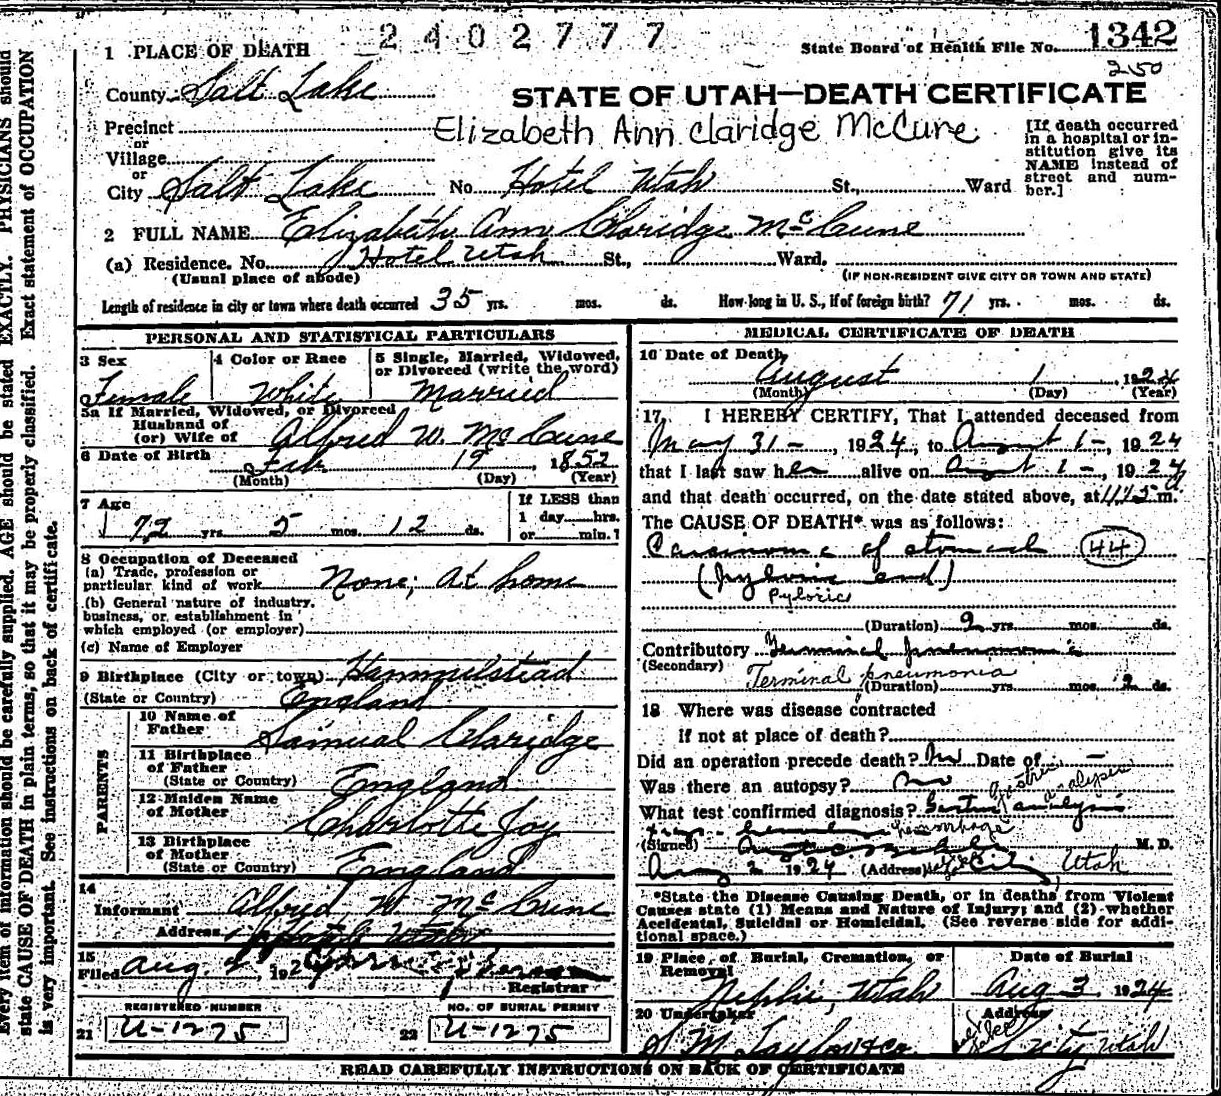 2402777
State Board of Health File No. 1342
250
1 PLACE OF DEATH
County Salt Lake
STATE OF UTAH—DEATH CERTIFICATE
Precinct
or
Elizabeth Ann Claridge McCune
Village
or
City Salt Lake No. Hotel Utah St., Ward
[If death occurred
in a hospital or in-
stitution give its
NAME instead of
street and num-
ber.]
2 FULL NAME Elizabeth Ann Claridge McCune
(a) Residence. No. Hotel Utah St., Ward.
(Usual place of abode) (IF NON-RESIDENT GIVE CITY OR TOWN AND STATE)
Length of residence in city or town where death occurred 35 yrs. mos. ds. How long in U. S., if of foreign birth? 71 yrs. mos. ds.
PERSONAL AND STATISTICAL PARTICULARS
3 Sex
Female
4 Color or Race
White
5 Single, Married, Widowed,
or Divorced (write the word)
Married
5a If Married, Widowed, or Divorced
Husband of
(or) Wife of Alfred W. McCune
6 Date of Birth Feb 19 1852
(Month) (Day) (Year)
7 Age
72 yrs 5 mos. 12 ds.
If LESS than
1 day......hrs.
or......min.?
8 Occupation of Deceased
(a) Trade, profession or
particular kind of work None; At home
(b) General nature of industry,
business, or establishment in
which employed (or employer)
(c) Name of Employer
9 Birthplace (City or town) Hammelstead
(State or Country) England
PARENTS
10 Name of
Father Samual Claridge
11 Birthplace
of Father
(State or Country) England
12 Maiden Name
of Mother Charlotte Joy
13 Birthplace
of Mother
(State or Country) England
14
Informant Alfred W. McCune
Address Hotel Utah
15
Filed Aug. 2, 192
Registrar
REGISTERED NUMBER
21 U-1275
NO. OF BURIAL PERMIT
22 U-1275
MEDICAL CERTIFICATE OF DEATH
16 Date of Death
August 1, 1924
(Month) (Day) (Year)
17. I HEREBY CERTIFY, That I attended deceased from
May 31-, 1924, to August 1-, 1924
that I last saw her alive on August 1-, 1924
and that death occurred, on the date stated above, at m.
The CAUSE OF DEATH* was as follows:
Carcinoma of stomach 44
(pyloric end)
Pyloric
(Duration) 2 yrs mos. ds.
Contributory Terminal pneumonia
(Secondary)
Terminal pneumonia
(Duration) yrs mos. 2 ds.
18 Where was disease contracted
if not at place of death?
Did an operation precede death? No Date of -
Was there an autopsy? no
Gastric analysis
What test confirmed diagnosis? Gastric analysis
hemorrhage
(Signed) M. D.
Aug 2 1924 (Address) Salt Lake City, Utah
*State the Disease Causing Death, or in deaths from Violent
Causes state (1) Means and Nature of Injury; and (2) whether
Accidental, Suicidal or Homicidal. (See reverse side for addi-
tional space.)
19 Place of Burial, Cremation, or
Removal
Nephi, Utah
Date of Burial
Aug 3 1924
20 Undertaker
S M Taylor & Co.
Address
Salt Lake City, Utah
READ CAREFULLY INSTRUCTIONS ON BACK OF CERTIFICATE
Every item of information should be carefully supplied. AGE should be stated EXACTLY. PHYSICIANS should
state CAUSE OF DEATH in plain terms, so that it may be properly classified. Exact statement of OCCUPATION
is very important. See instructions on back of certificate.